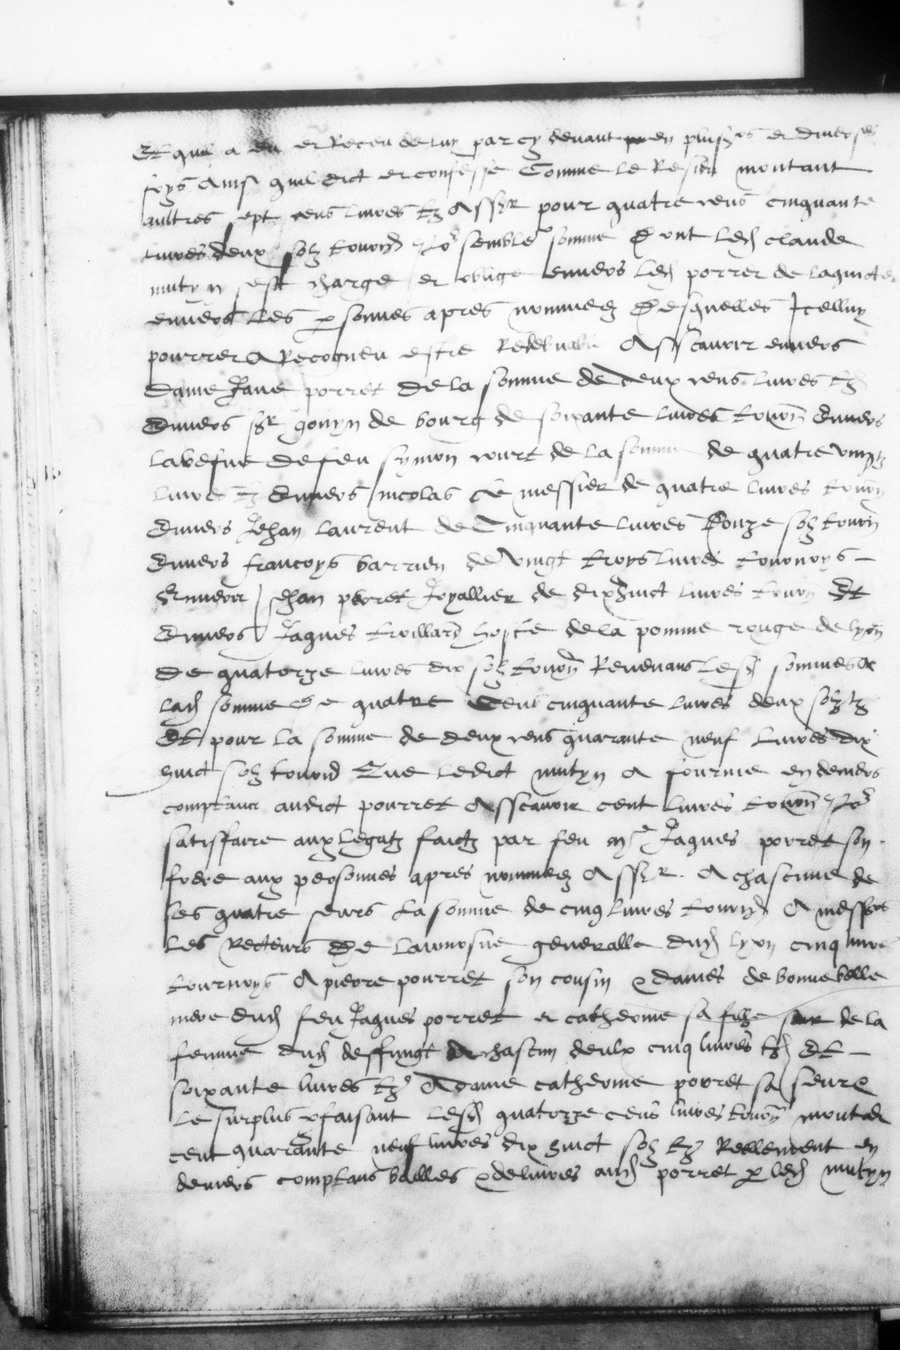 Et quil a eu et Receu de luy par cy devant en plusrs et diverses
foys Ainsi quil dict et confesse Comme le Reste montant
aultres sept cens livres tz Assr pour quatre cens cinquante
livres deux solz tourn semble somme Dont led claude
mutyn sest charge et oblige envers led porret de laquicter
envers les psonnes apres nommees Desquelles Icelluy
pourret A Recogneu estre Redevable Assavoir envers
Dame Jane porret De la somme de Deux cens livres tz
Envers sr gonyn de bourg de soixante livres tourn Envers
la vefve de feu symon de la somme de quatre vingtz
livres tz Envers nicolas messier de quatre livres tourn
Envers Jehan laurent de Cinquante livres Douze solz tourn
Envers francoys barrieu de vingt troys livres tournoys
Envers Jehan porret Joyallier de dixhuict livres tourn Et
Envers Jaques troillard hoste de la pomme rouge de lyon
De quatorze livres dix solz tourn Revenans lesd sommes A
lad somme de quatre Cens cinquante livres deux solz tz
Et pour la somme de deux cens quarante neuf livres dix
huict solz tourn Que ledict mutyn A fournie en deniers
comptans audict pourret Asscavoir cent livres tourn
satisffaire aux legatz faictz par feu me Jaques porret son
frere aux personnes apres nommees Assr A chascune de
ses quatre seurs La somme de cinq livres tourn A messrs
les Recteurs De laumosne generalle dud lyon cinq livres
tournoys A pierre pourret son cousin dames de bonne
mere dud feu Jaques porret et catherine sa fille de la
femme dud deffunct A chascun deulx cinq livres tz Et
soixante livres tz A dame catherine porret sa seure
Le surplus pfaisant lesd quatorze cens livres tourn montant
cent quarante neuf livres dix huict solz tz Reellement en
deniers comptans bailles delivres aud porret p led mutyn